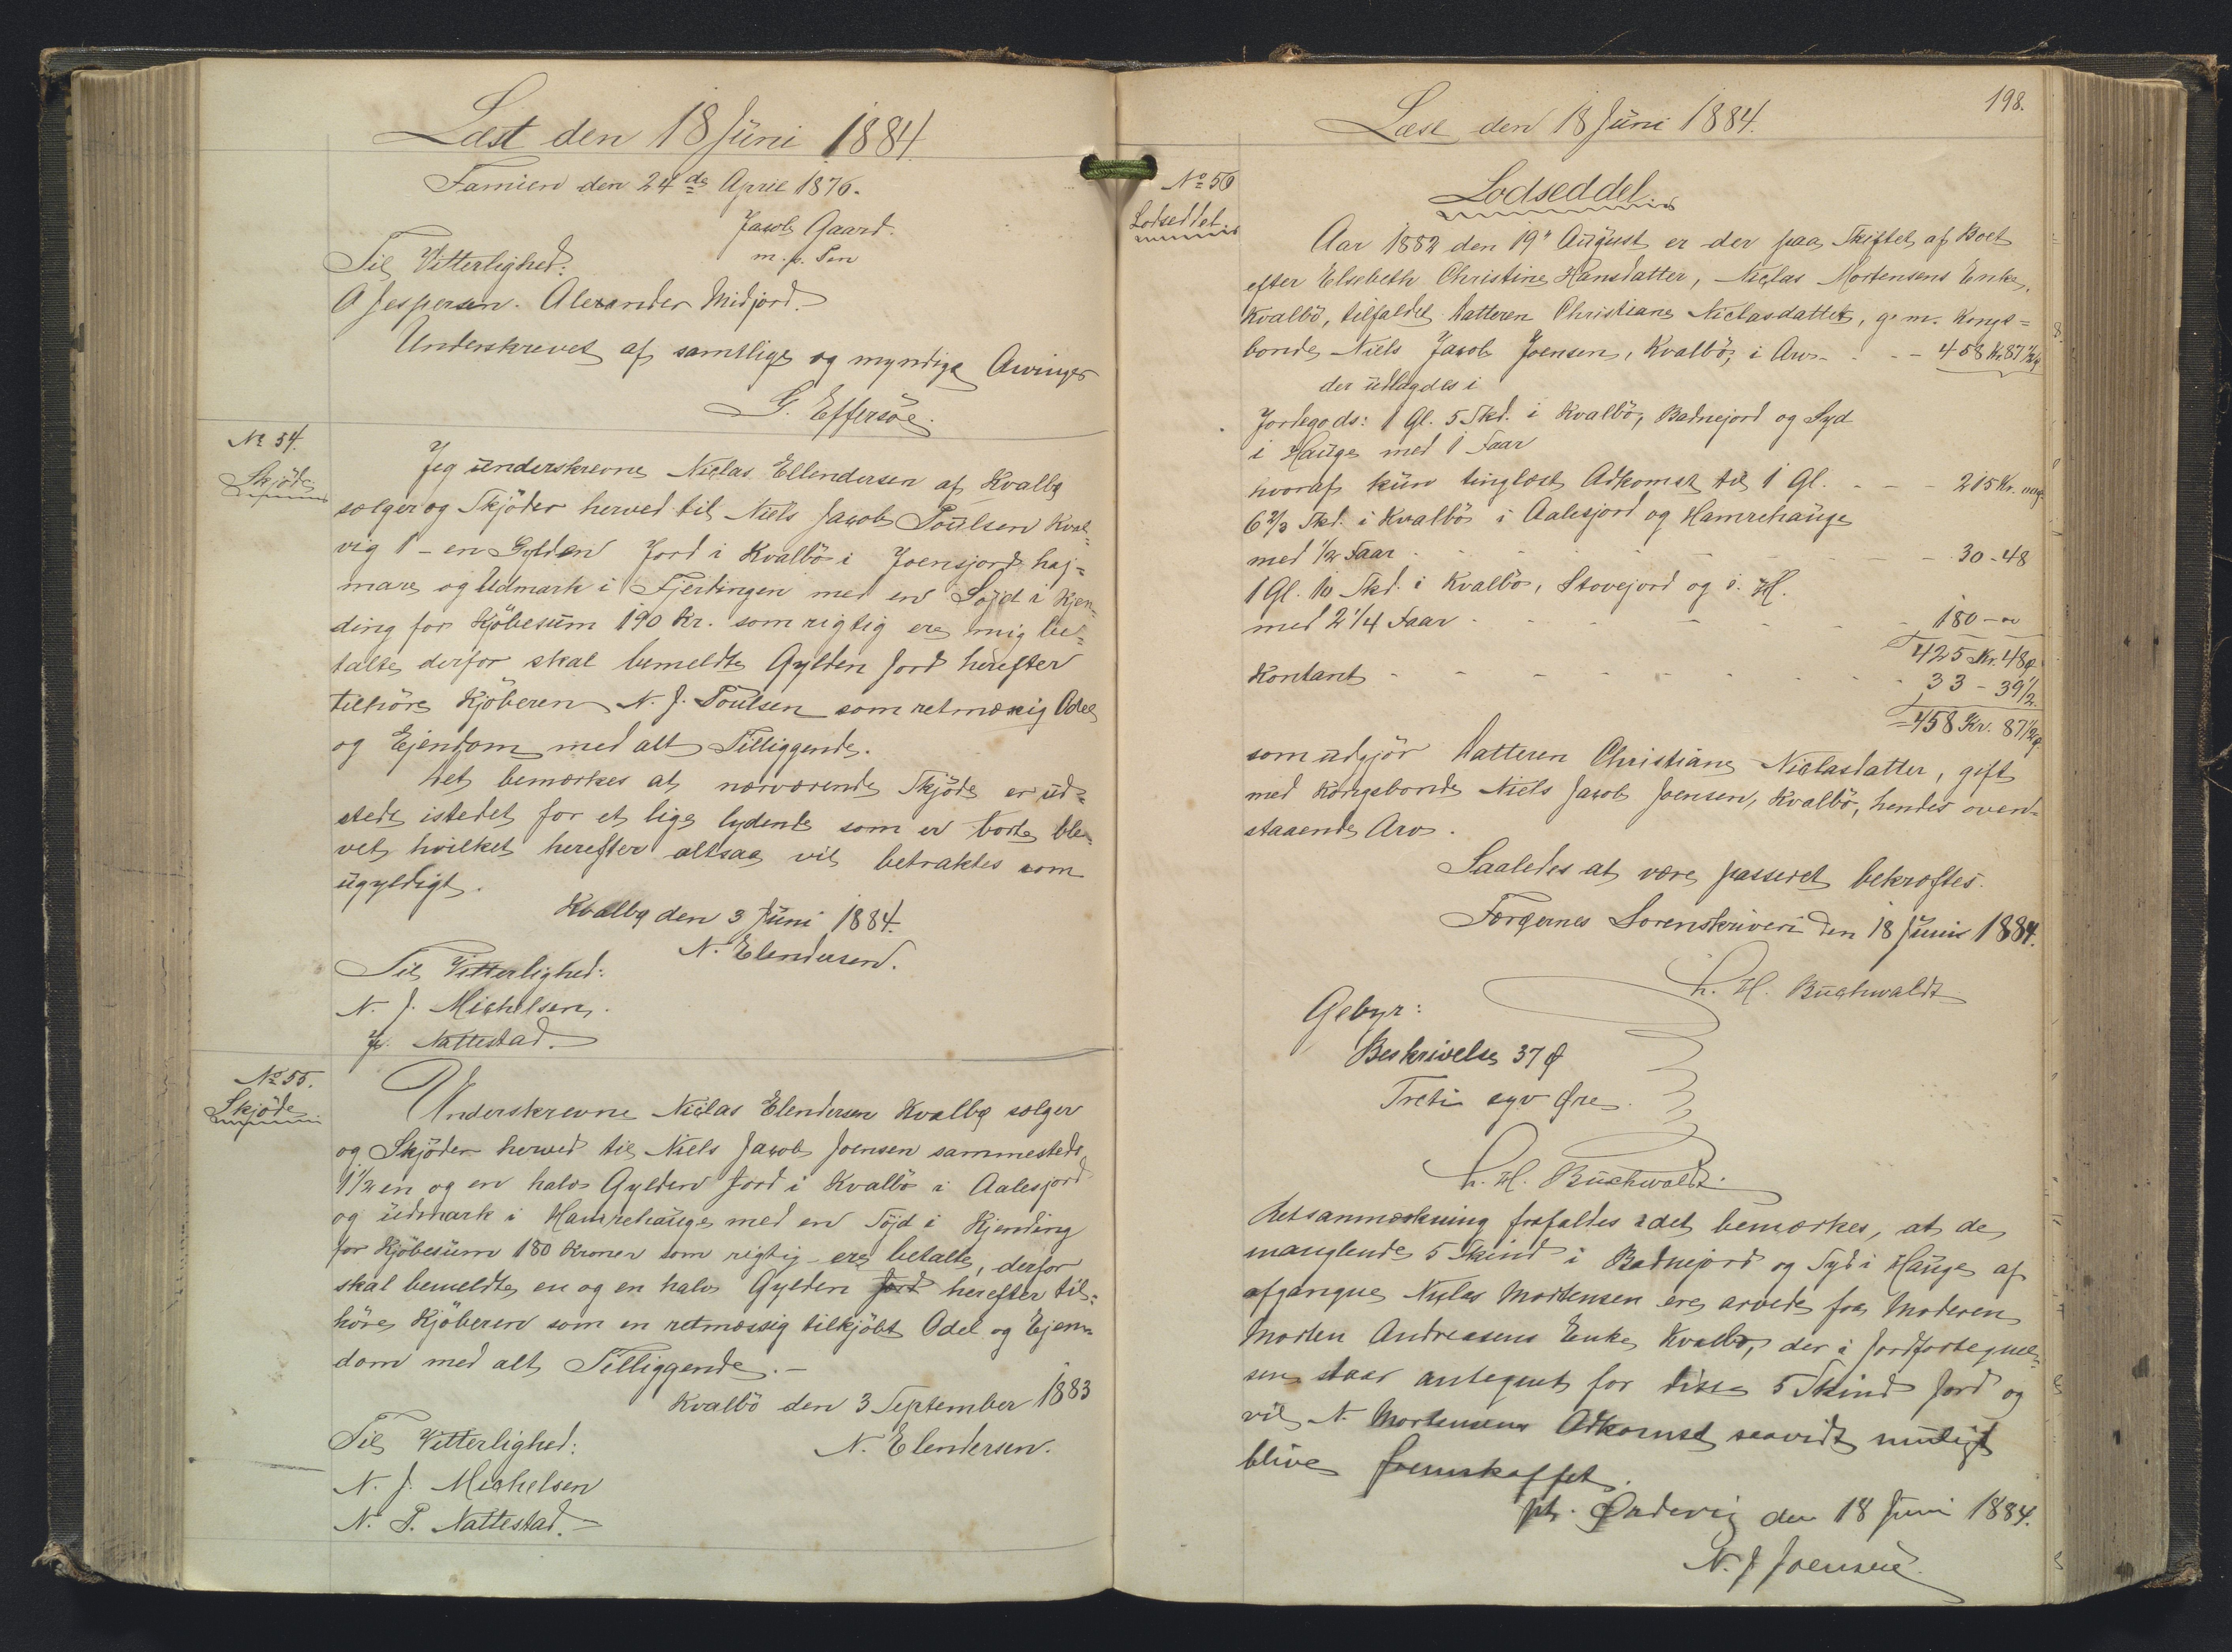 Læst den 18 Juni 1884.
Famien den 24de April 1876.
Jacob Gaard.
m. p. Pen
Til Vitterlighed:
O Jespersen. Alexander Midjord.
Underskrevet af samtlige og myndige Arvinger
G. Effersøe.
No 54.
Skjöde
Jeg underskrevne Niclas Ellendersen af Kvalbø
sælger og Skjöder herved til Niels Jacob Poulsen Kval=
vig 1 - en Gylden Jord i Kvalbö i Joensjord haj=
mare og Udmark i Fjeldingen med en Söjd i Kjen=
ding for Kjöbesum 190 Kr. som rigtig ere mig be=
talte, derfor skal bemeldte Gylden Jord herefter
tilhöre Kjöberen N. J. Poulsen som retmæsig Odel
og Ejendom med alt Tilliggende.
Det bemærkes at nærværende Skjöde er ud=
stedt istedet for et lige lydende som er borte ble=
vet, hvilket herefter altsaa vil betraktes som
ugyldigt.
Kvalbø den 3 Juni 1884.
N. Elendersen.
Til Vitterlighed:
N. J. Michelsen.
J. Nattestad.
No 55.
Skjöde
Underskrevne Niclas Elendersen Kvalbø sælger
og Skjöder herved til Niels Jacob Joensen sammesteds
1 1/2 en og en halv Gylden Jord i Kvalbö i Aalesjord
og udmark i Hamrehauge med en Söjd i Kjending
for Kjöbesum 180 Kroner som rigtig ere betalte, derfor
skal bemeldte en og en halv Gylden Jord herefter til=
höre Kjöberen som en retmæssig tilkjöbt Odel og Ejen=
dom med alt Tilliggende. -
Kvalbö den 3 September 1883
N. Elendersen.
Til Vitterlighed:
N. J. Michelsen
N. P. Nattestad. -
198.
Læst den 18 Juni 1884.
No 56
Lodseddel.
Lodseddel.
Aar 1882 den 19" August er der paa Skiftet af Boet
efter Elsebeth Christine Hansdatter, Niclas Mortensens Enke,
Kvalbö, tilfaldet Datteren Christiane Niclasdatter, g. m. Kongs=
bonde Niels Jacob Joensen, Kvalbö, i Arv - - - 458 Kr. 87 1/2 ø
der udlagdes i
Jordegods: 1 Gl. 5 Skd. i Kvalbö, Badnejord og Syd
i Hauge med 1 Faar
hvoraf kun tinglæst Adkomst til 1 Gl. - - - 215 Kr.
6 2/3 Skd. i Kvalbö i Aalesjord og Hamrehauge
med 1/2 Faar - - - 30 - 48
1 Gl. 10 Skd. i Kvalbö, Stovejord og i. H.
med 2 1/4 Faar - - - 180 - "
425 Kr. 48 ø
Kontant - - - 33 - 39 1/2
458 Kr. 87 1/2 ø
som udgjör Datteren Christiane Niclasdatter, gift
med Kongsbonde Niels Jacob Joensen, Kvalbö, hendes oven=
staaende Arv.
Saaledes at være passeret bekræftes.
Færøernes Sorenskriveri den 18 Juni 1884.
L. H. Buchwaldt
Gebyr:
Beskrivelse 37 ø
Treti syv Øre.
L. H. Buchwaldt.
Retsanmærkning frafaldes idet bemærkes, at de
manglende 5 Skind i Badnejord og Syd i Hauge af
afgangne Niclas Mortensen ere arvede fra Moderen
Morten Andreasens Enke, Kvalbö, der i Jordfortegnel=
sen staar antegnet for disse 5 Skind Jord og
vil N. Mortensens Adkomst saavidt muligt
blive fremskaffet.
pt. Ørdevig den 18 Juni 1884.
N. J Joensen.